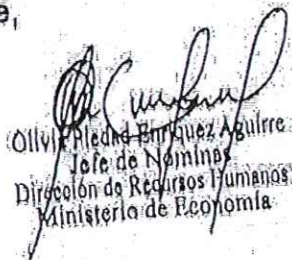 e,
Ollvia Piedad Enriquez Aguirre
Jefe de Nominas
Dirección de Recursos Humanos
Ministerio de Economía